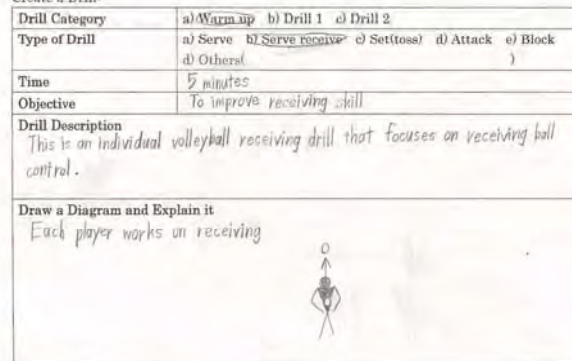 Create a Drill
Drill Category a) Warm up b) Drill 1 c) Drill 2
Type of Drill a) Serve b) Serve receive c) Set(toss) d) Attack e) Block
d) Others( )
Time 5 minutes
Objective To improve receiving skill
Drill Description
This is an individual volleyball receiving drill that focuses on receiving ball
control.
Draw a Diagram and Explain it
Each player works on receiving